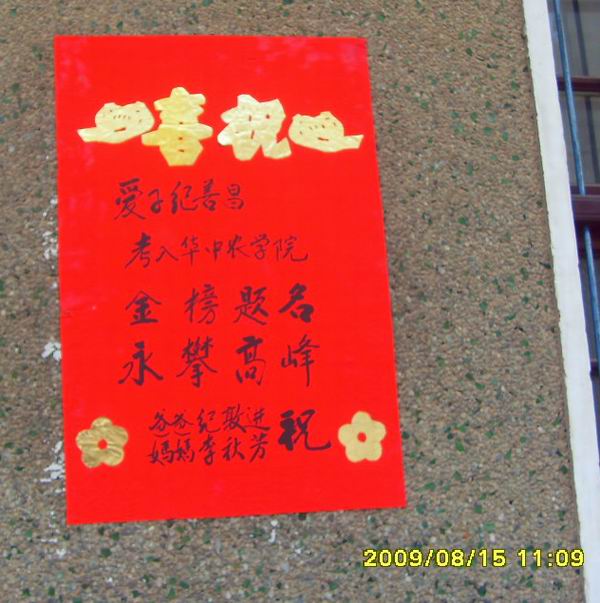 喜祝
愛子纪善昌
考入华中农学院
金榜题名
永攀高峰
爸爸纪敦进
媽媽李秋芳
祝
2009/08/15 11:09